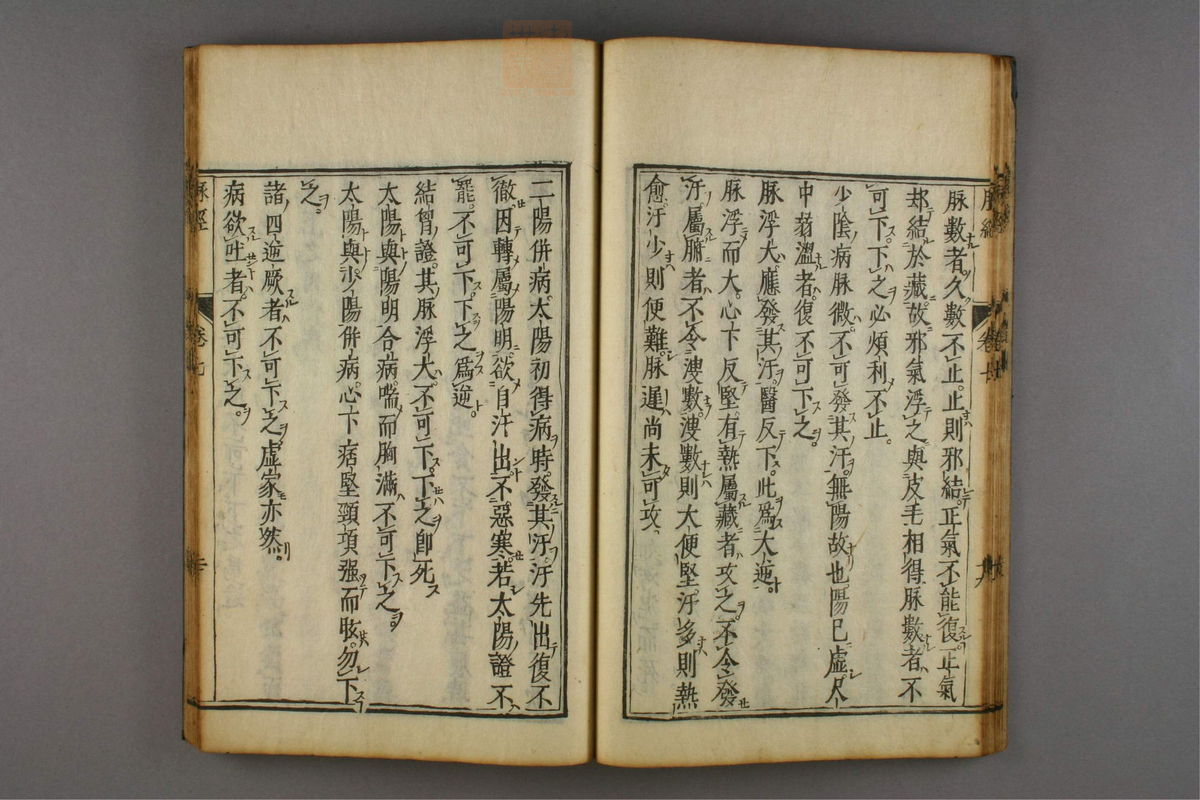 脉數者久數不止止則邪結正氣不能復正氣
却結於藏故邪氣浮之與皮毛相得脉數者不
可下下之必煩利不止
少陰病脉微不可發其汗無陽故也陽已虚尺
中弱濇者復不可下之
脉浮大應發其汗醫反下此爲大逆
脉浮而大心下反堅有熱屬藏者攻之不令發
汗屬腑者不令溲數溲數則大便堅汗多則熱
愈汗少則便難脉遲尚未可攻
二陽併病太陽初得病時發其汗汗先出復不
徹因轉屬陽明欲自汗出不惡寒若太陽證不
罷不可下下之爲逆
結胷證其脉浮大不可下下之即死
太陽與陽明合病喘而胸滿不可下之
太陽與少陽併病心下痞堅頸項强而眩勿下
之
諸四逆厥者不可下之虚家亦然
病欲吐者不可下之
脉經
卷七